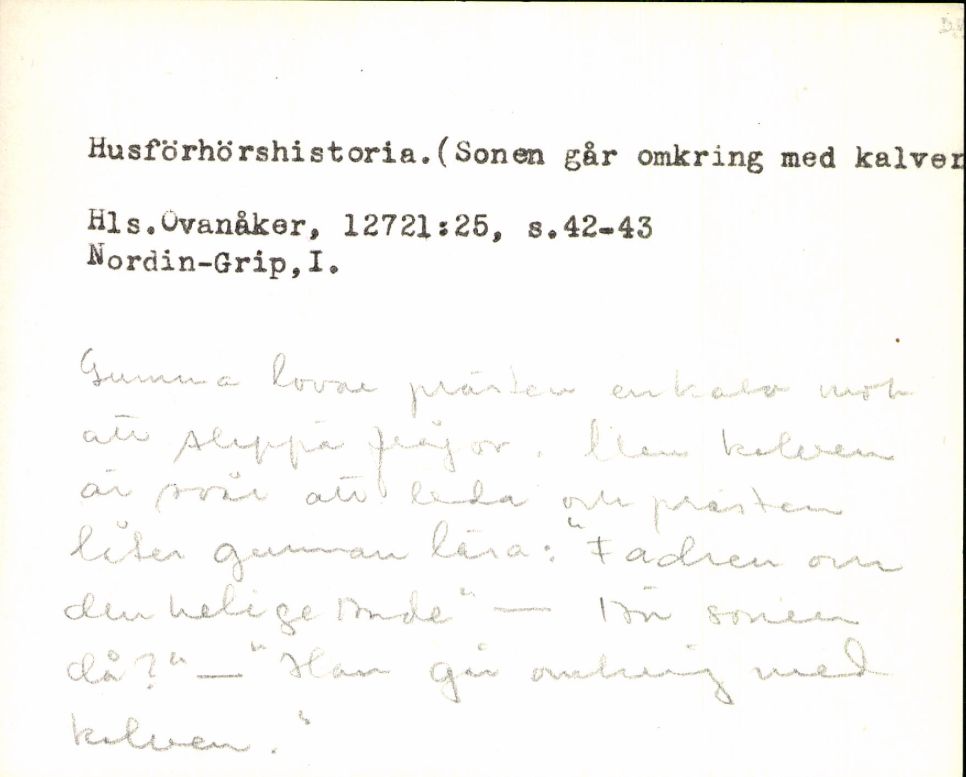 Husförhörshistoria.(Sonen går omkring med kalven
Hls.Ovanåker, 12721:25, s.42-43
Nordin-Grip,I.
Gumma lovar prästen en kalv mot
att slippa frågor. Men kalven
är svår att leda och prästen
låter gumman lära: "Fadren och
den helige Ande" — Än sonen
då?" — "Han går omkring med
kalven."